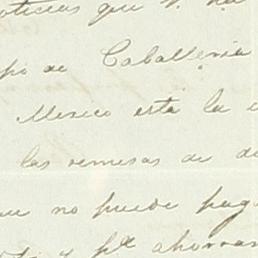 noticias que
po de Caballeria
Mexico esta la
las remesas de
no puede pag
y pa ahorrar